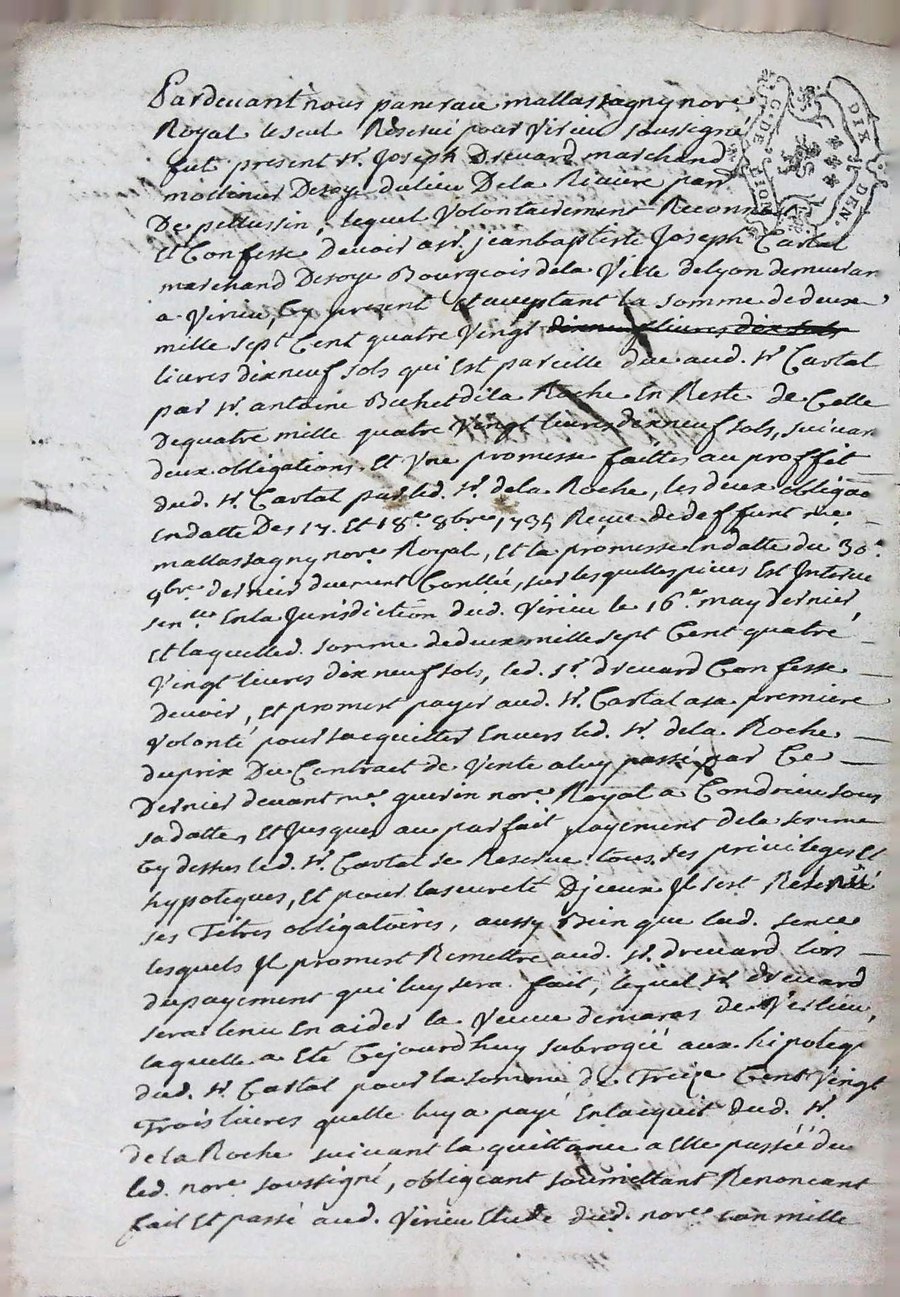 Pardevant nous pancrace mallassagny nore
Royal le seul Reservé pour Virieu soussigné
fut present sr. Joseph Drevard marchand
moulinier Desoye du lieu Dela Riviere par
De pellussin, lequel Volontairement Reconnoi
Et Confesse Devoir a sr. jeanbaptiste Joseph Castal
marchand Desoye Bourgeois dela Ville de lyon demeuran
a Virieu, Cy present Et acceptant la somme de deux
mille sept Cent quatre Vingt
livres dixneuf sols qui Est pareille due aud. sr. Castal
par sr. antoine Bechet dela Roche En Reste de Celle
Dequatre mille quatre Vingt livres dixneuf sols, suivan
deux obligations Et Vne promesse faittes au proffit
dud. sr. Castal par led. sr. dela Roche, les deux obligãõ
En datte Des 17. Et 18e. 8bre 1735 Reçue de deffunt me.
mallassagny nore Royal, Et la promesse En datte du 30e.
9bre dernier duement Conllée, sur lesquelles pieces Est Intervue
sence Enla Jurisdiction dud. Virieu le 16e. may dernier,
Et laquelled. somme dedeux mille sept Cent quatre
Vingt livres dix neuf sols, led. sr. drevard Confesse
devoir, Et promest payer aud. sr. Castal asa premiere
Volonté pour sacquitter Envers led. sr. dela Roche
du prix Du Contract de Vente aluy passé par Ce
Dernier devant me. guerin nore Royal a Condrieu sous
sa datte, Et Jusques au parfait payement dela somme
Cy dessus led. sr. Castal se Reserve tous ses privileges Et
hypoteques, Et pour la sureté Diceux Il sest Reservé
ses Titres obligatoires, aussy Bien que lad. sence
lesquels Il promest Remettre aud. sr. drevard lors
du payement qui luy sera fait, lequel sr. drevard
sera tenu En aider la Veuve demaras de Verlieu,
laquelle a Eté Cejourdhuy subrogée aux hipoteqs
dud. sr. Castal pour la somme de Treize Cent Vingt
Trois livres quelle luy a payé En lacquit dud. sr.
de la Roche suivant la quittance a Elle passée du
led. nore soussigné, obligeant soumettant Renoncant
fait Et passé aud. Virieu Etude dud. nore Lan mille
G. DE LION
DIX DEN.